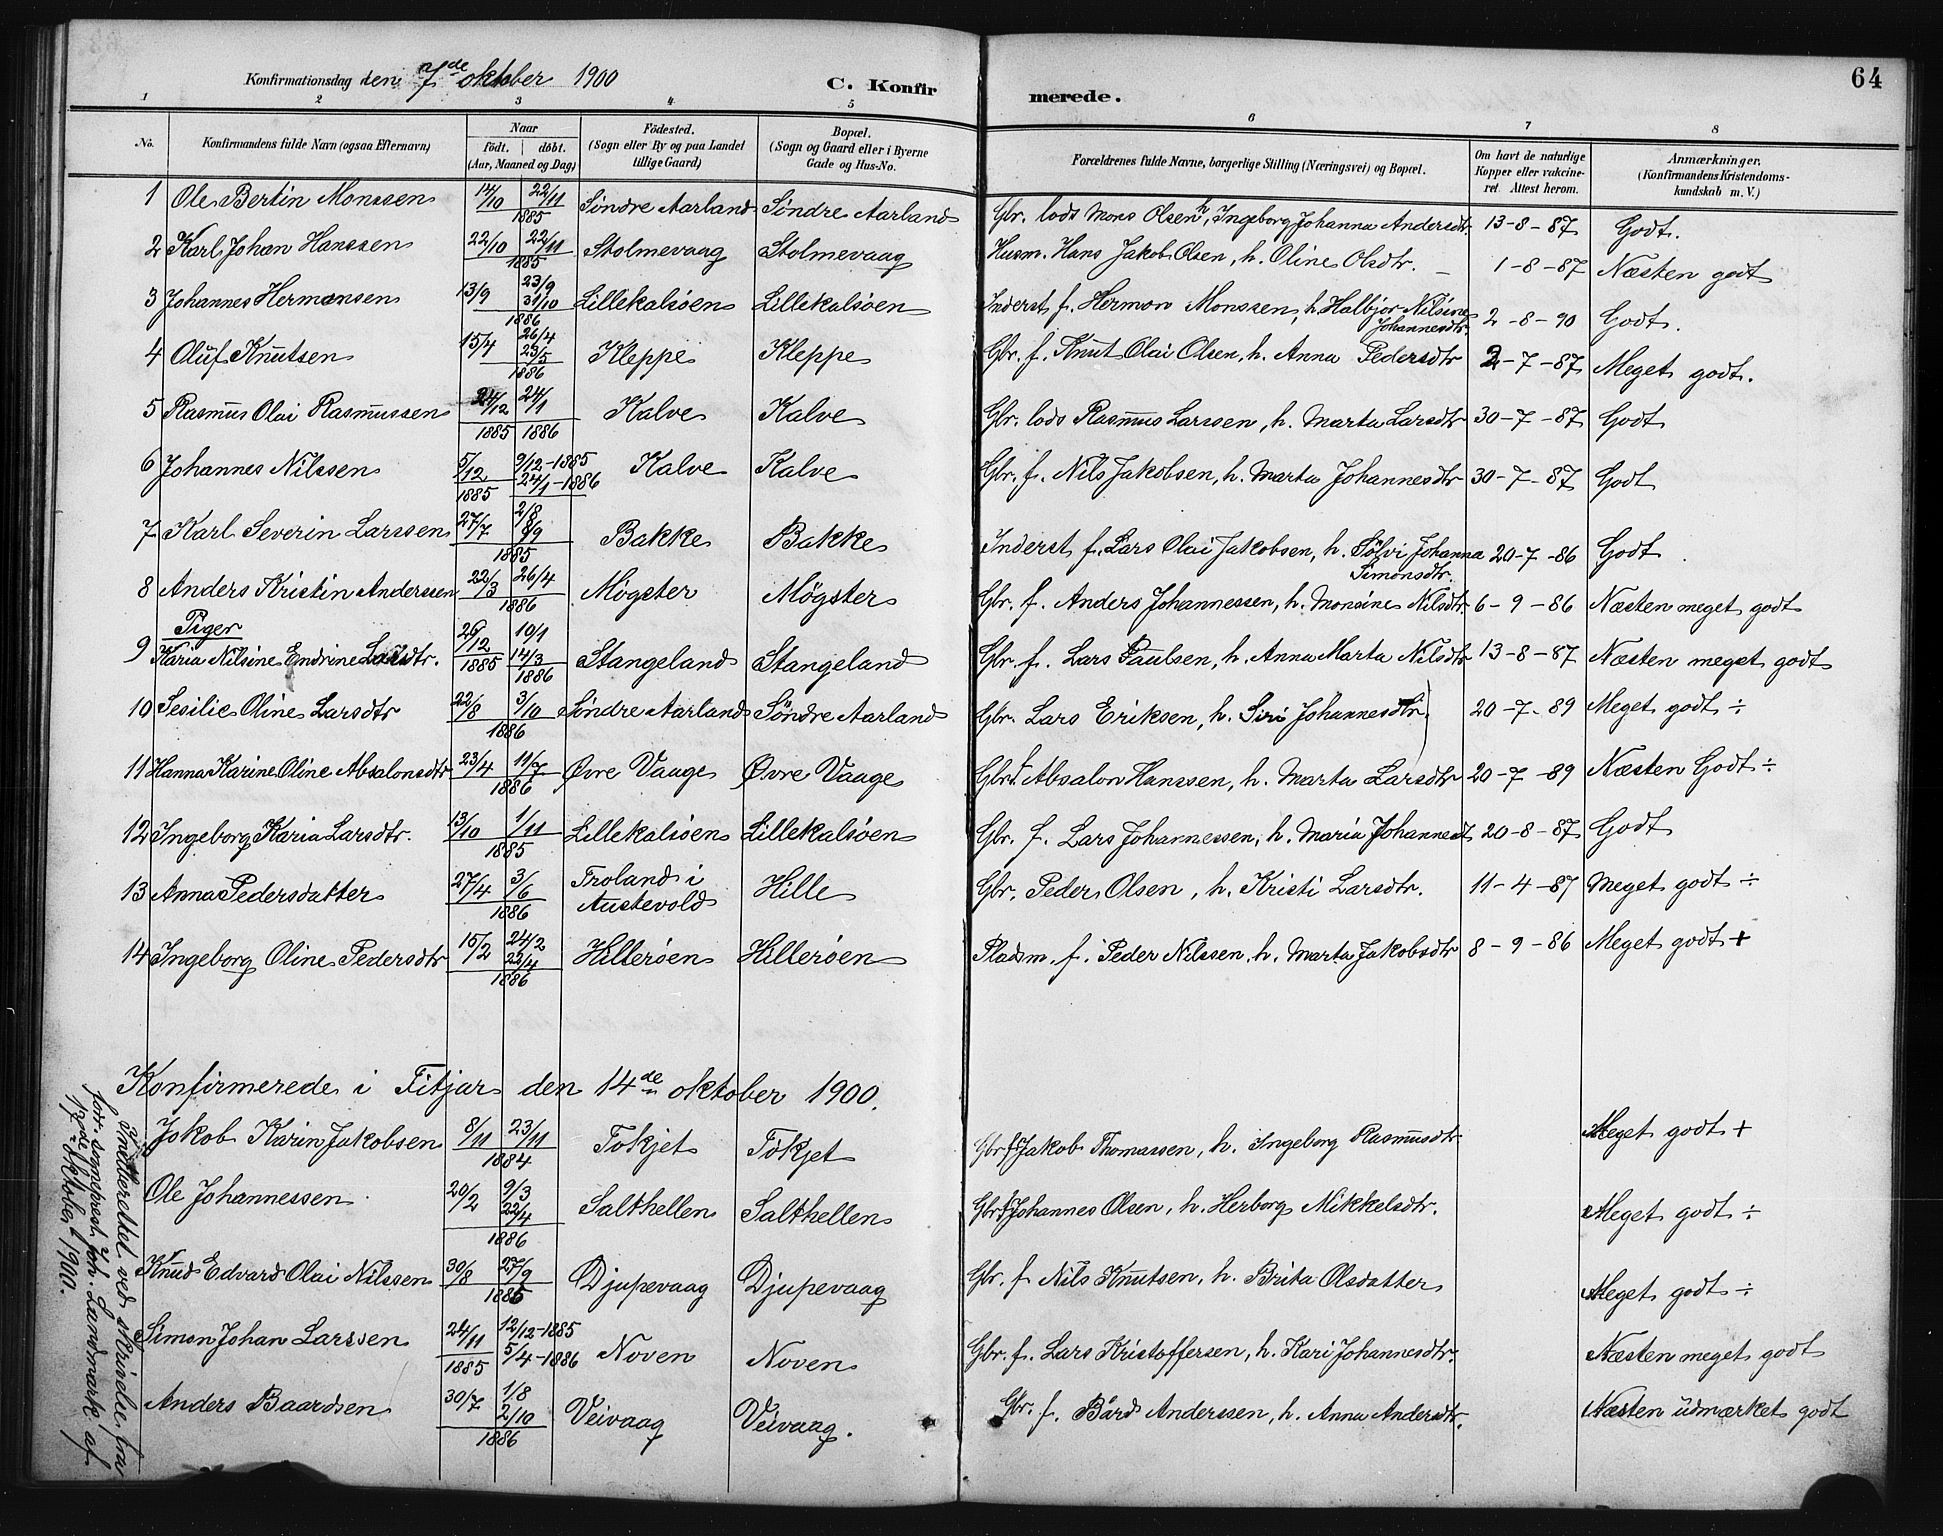 Konfirmationsdag den 7de oktober 1900 C. Konfirmerede. 64
1 2 3 4 5 6 7 8
No. Konfirmandens fulde Navn (ogsaa Efternavn) Naar født. døbt. (Aar, Maaned og Dag) Födested. (Sogn eller By og paa Landet tillige Gaard) Bopæl. (Sogn og Gaard eller i Byerne Gade og Hus-No. Forældrenes fulde Navne, borgerlige Stilling (Næringsvei) og Bopæl. Om havt de naturlige Kopper eller vakcineret. Attest herom. Anmærkninger. (Konfirmandens Kristendomskundskab m. V.)
1 Ole Bertin Monssen 14/10 22/11 1885 Söndre Aarland Söndre Aarland Gbr. lods Mons Olsen, h. Ingeborg Johanna Andersdtr. 13-8-87 Godt.
2 Karl Johan Hanssen 22/10 22/11 1885 Stolmevaag Stolmevaag Husm. Hans Jakob Olsen, h. Oline Olsdtr. 1-8-87 Næsten godt
3 Johannes Hermansen 13/9 23/9 31/10 1886 Lillekalsöen Lillekalsöen Inderst f. Herman Monssen, h. Halbjor Nilsine Johannesdtr 2-8-90 Godt.
4 Oluf Knutsen 15/4 26/4 23/5 1886 Kleppe Kleppe Gbr. f. Knut Olai Olsen, h. Anna Pedersdtr 2-7-87 Meget godt.
5 Rasmus Olai Rasmussen 24/12 24/1 1885 1886 Kalve Kalve Gbr. lods Rasmus Larssen, h. Marta Larsdtr 30-7-87 Godt
6 Johannes Nilssen 5/12 1885 9/12-1885 24/1-1886 Kalve Kalve Gbr. f. Nils Jakobsen, h. Marta Johannesdtr 30-7-87 Godt
7 Karl Severin Larssen 27/7 2/8 8/9 1885 Bakke Bakke Inderst f. Lars Olai Jakobsen, h. Sölvi Johanna Simonsdtr. 20-7-86 Godt
8 Anders Kristin Anderssen 22/3 26/4 1886 Mögster Mögster Gbr. f. Anders Johannessen, h. Monsine Nilsdtr 6-9-86 Næsten meget godt
Piger
9 Karia Nilsine Endrine Larsdtr. 26/12 1885 10/1 14/3 1886 Stangeland Stangeland Gbr. f. Lars Paulsen, h. Anna Marta Nilsdtr 13-8-87 Næsten meget godt
10 Sesilie Oline Larsdtr 22/8 3/10 1886 Söndre Aarland Söndre Aarland Gbr. Lars Eriksen, h. Siri Johannesdtr. 20-7-89 Meget godt ÷
11 Hanna Karine Oline Absalonsdtr 23/4 11/7 1886 Øvre Vaage Øvre Vaage Gbr. f. Absalon Hanssen, h. Marta Larsdtr 20-7-89 Næsten Godt ÷
12 Ingeborg Karia Larsdtr. 13/10 1/11 1885 Lillekalsöen Lillekalsöen Gbr. f. Lars Johannessen, h. Maria Johannesd 20-8-87 Godt
13 Anna Pedersdatter 27/4 3/6 1886 Troland i Austevold Hille Gbr. Peder Olsen, h. Kristi Larsdtr. 11-4-87 Meget godt ÷
14 Ingeborg Oline Pedersdtr 15/2 24/2 22/4 1886 Hilleröen Hilleröen Pladsm. f. Peder Nilssen, h. Marta Jakobsdtr 8-9-86 Meget godt +
Konfirmerede i Fitjar den 14de oktober 1900.
Jakob Karin Jakobsen 8/11 23/11 1884 Tokjet Tökjet Gbr f Jakob Thomassen, h. Ingeborg Rasmusdtr. Meget godt +
Ole Johannessen 20/2 9/3 22/4 1886 Salthellen Salthellen Gbr f Johannes Olsen, h. Herborg Mikkelsdtr. Meget godt ÷
Knud Edvard Olai Nilssen 30/8 27/9 1885 Djupevaag Djupevaag Gbr. f Nils Knutsen, h. Brita Olsdatter Meget godt ÷
Simon Johan Larssen 24/11 1885 12/12-1885 5/4-1886 Noven Noven Gbr. f. Lars Kristoffersen, h. Kari Johannesdtr. Næsten meget godt
Anders Baardsen 30/7 1/8 2/10 1886 Veivaag Veivaag. Gbr. f. Bård Anderssen, h. Anna Andersdtr. Næsten udmærket godt
Indberettet ved skrivelse fra
for. sogneprest Joh. Landmark af
17. oktober 1900.